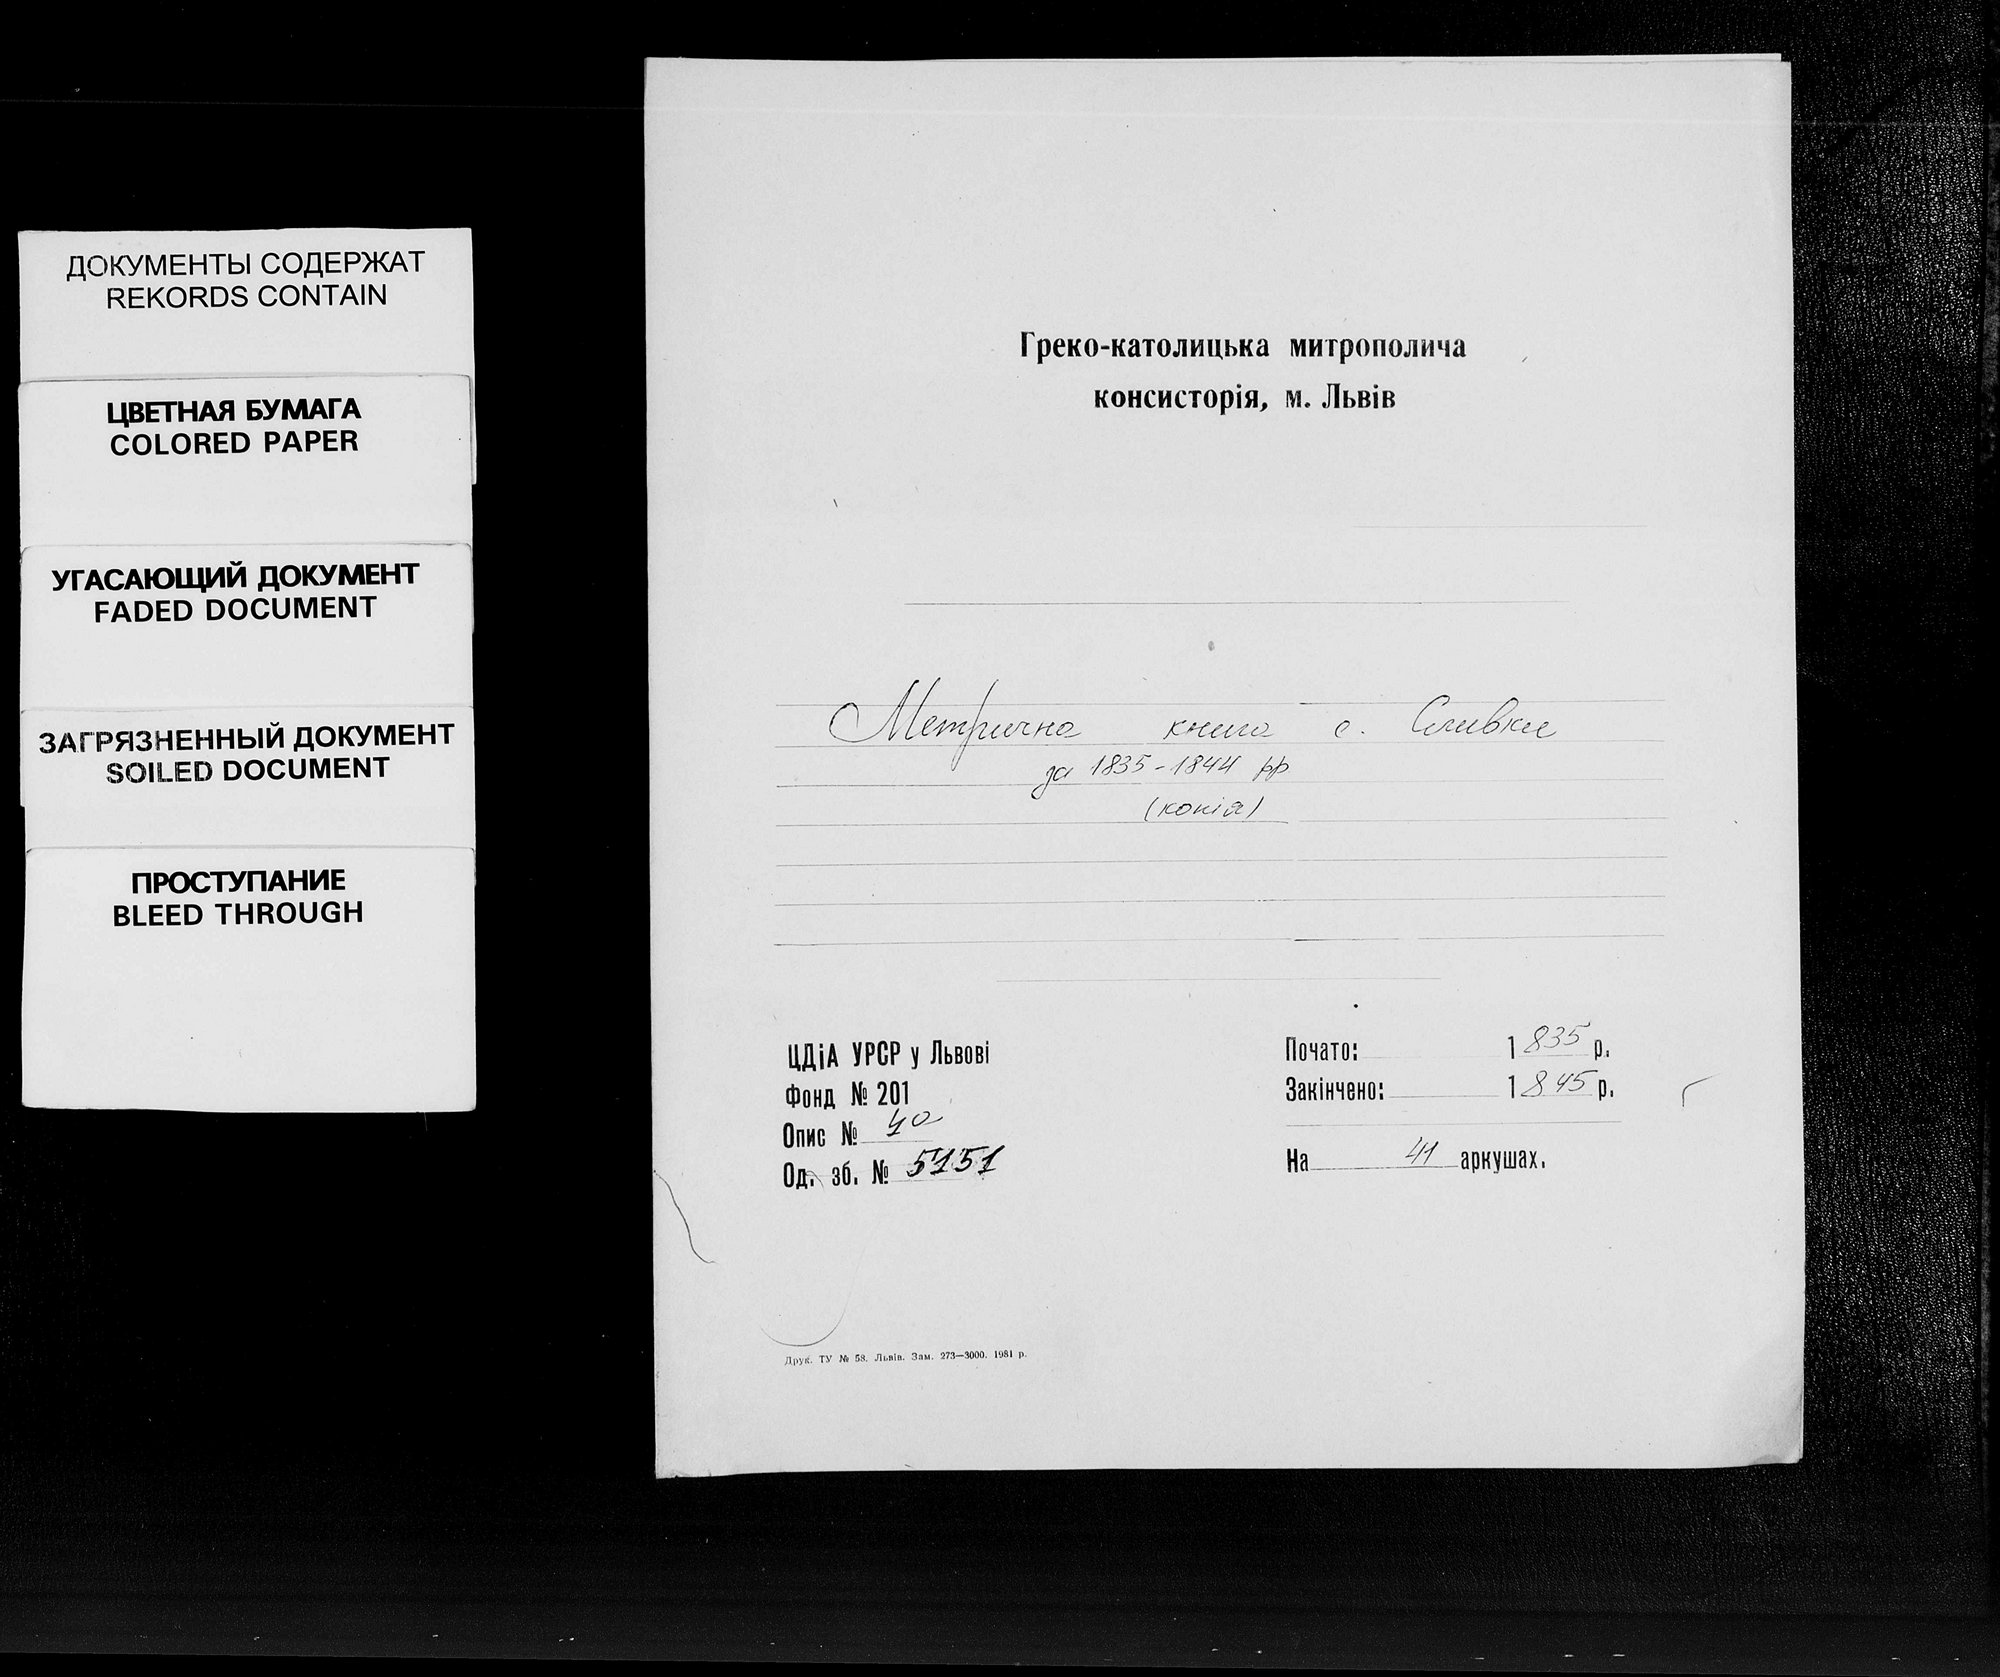 ДОКУМЕНТЫ СОДЕРЖАТ
REKORDS CONTAIN
ЦВЕТНАЯ БУМАГА
COLORED PAPER
УГАСАЮЩИЙ ДОКУМЕНТ
FADED DOCUMENT
ЗАГРЯЗНЕННЫЙ ДОКУМЕНТ
SOILED DOCUMENT
ПРОСТУПАНИЕ
BLEED THROUGH
Греко-католицька митрополича
консисторія, м. Львів
Метрична книга с. Сливки
за 1835-1844 рр
(копія)
ЦДіА УРСР у Львові
Фонд № 201
Опис № 4а
Од. зб. № 5151
Почато: 1835 р.
Закінчено: 1845 р.
На 41 аркушах.
Друк. ТУ № 58. Львів. Зам. 273—3000. 1981 р.